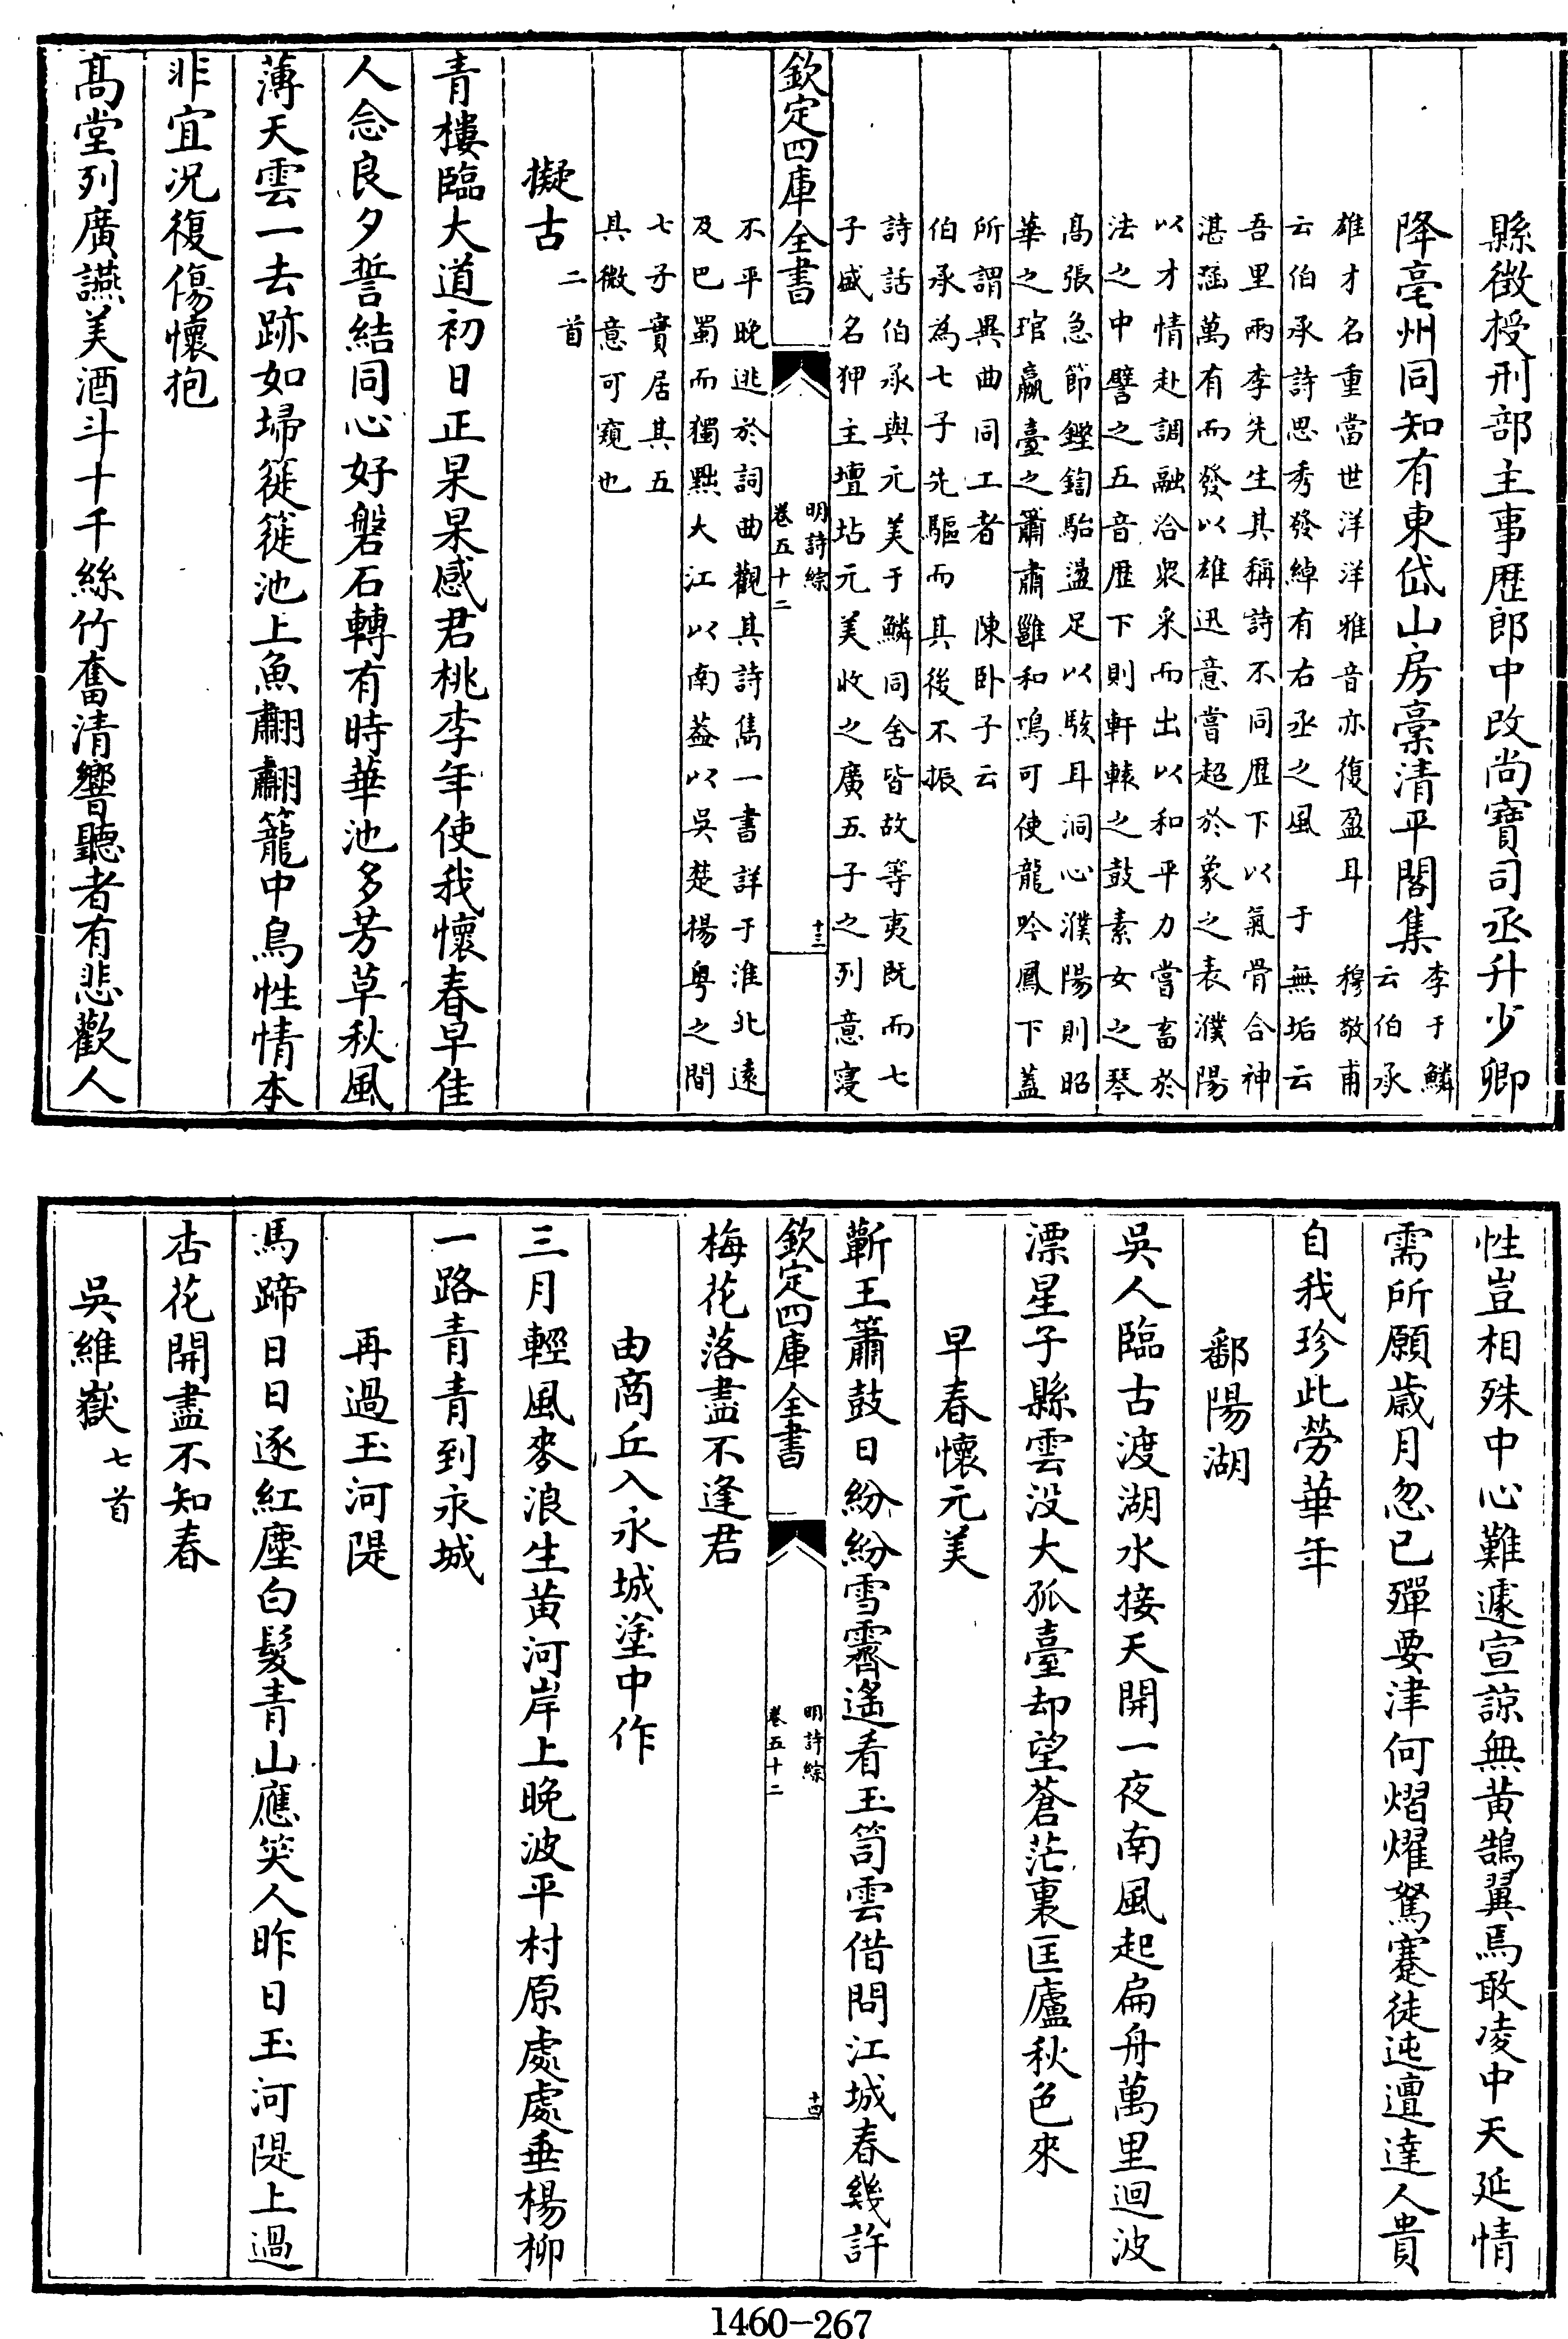 縣徴授刑部主事歴郎中改尚寶司丞升少卿
降亳州同知有東岱山房槀清平閣集
李于鱗
云伯承
雄才名重當世洋洋雅音亦復盈耳　穆敬甫
云伯承詩思秀發綽有右丞之風　于無垢云
吾里兩李先生其稱詩不同歴下以氣骨合神
湛涵萬有而發以雄迅意嘗超於象之表濮陽
以才情赴調融洽衆采而出以和平力當畜於
法之中譬之五音歴下則軒轅之鼓素女之琴
高張急節鏗鍧駘盪足以駭耳洞心濮陽則昭
華之琯嬴臺之簫肅雝和鳴可使龍吟鳳下蓋
所謂異曲同工者　陳卧子云
伯承為七子先驅而其後不振
詩話伯承與元美于鱗同舍皆故等夷既而七
子盛名狎主壇坫元美收之廣五子之列意寖
欽定四庫全書
明詩綜
卷五十二
十三
不平晚逃於詞曲觀其詩雋一書詳于淮北遠
及巴蜀而獨黜大江以南葢以吳楚楊粤之間
七子實居其五
具微意可窺也
擬古二首
青樓臨大道初日正杲杲感君桃李年使我懷春早佳
人念良夕誓結同心好磐石轉有時華池多芳草秋風
薄天雲一去跡如埽簁簁池上魚翩翩籠中鳥性情本
非宜况復傷懷抱
高堂列廣讌美酒斗十千絲竹奮清響聽者有悲歡人
性豈相殊中心難遽宣諒無黄鵠翼焉敢凌中天延情
需所願歳月忽已殫要津何熠燿駑蹇徒迍邅達人貴
自我珍此勞華年
鄱陽湖
吳人臨古渡湖水接天開一夜南風起扁舟萬里迴波
漂星子縣雲没大孤臺却望蒼茫裏匡廬秋色來
早春懷元美
蘄王簫鼓日紛紛雪霽遙看玉笥雲借問江城春幾許
欽定四庫全書
明詩綜
卷五十二
十四
梅花落盡不逢君
由商丘入永城塗中作
三月輕風麥浪生黄河岸上晚波平村原處處垂楊柳
一路青青到永城
再過玉河隄
馬蹄日日逐紅塵白髮青山應笑人昨日玉河隄上過
杏花開盡不知春
吳維嶽七首
1460-267